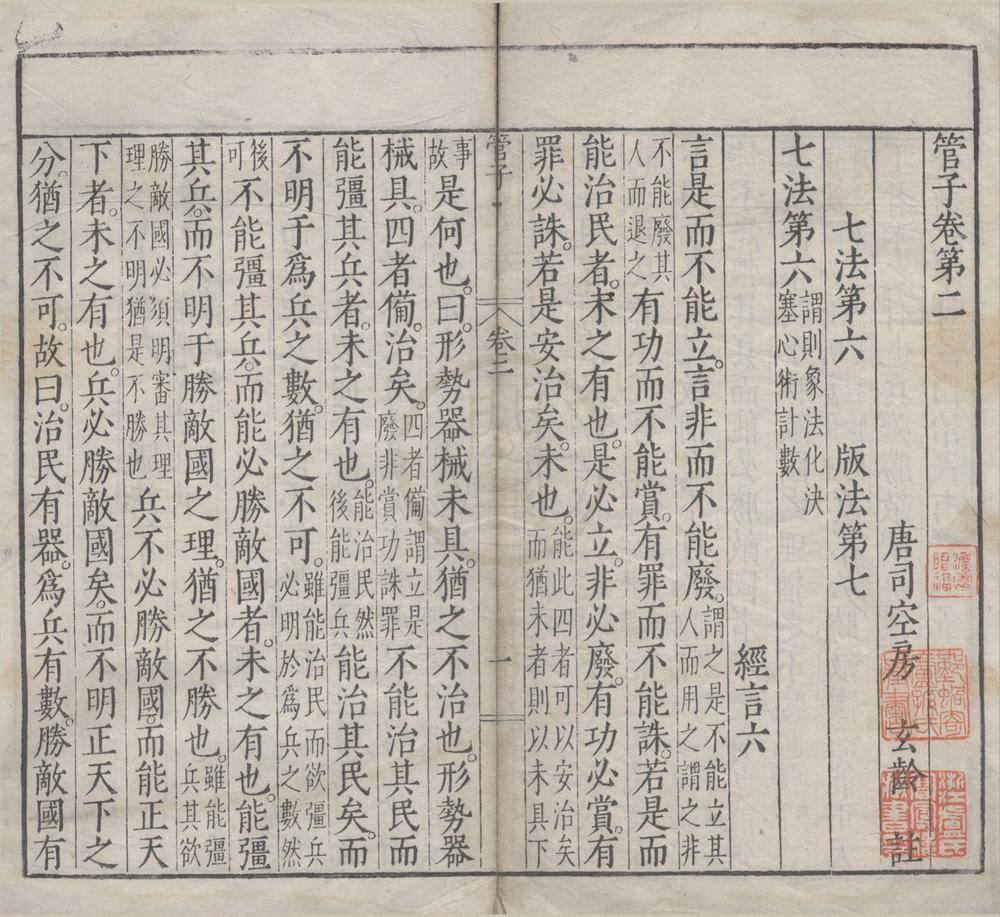 管子卷第二
唐司空房　玄齡　註
七法第六　版法第七
七法第六謂則象法化決塞心術計數
經言六
言是而不能立。言非而不能廢。謂之是不能立其人而用之謂之非
不能廢其人而退之有功而不能賞。有罪而不能誅。若是而
能治民者。未之有也。是必立。非必廢。有功必賞。有
罪必誅。若是安治矣。未也。能此四者可以安治矣而猶未者則以未具下
管子
卷二
一
事故是何也。曰。形勢器械未具。猶之不治也。形勢器
械具。四者備。治矣。四者備謂立是廢非賞功誅罪不能治其民而
能彊其兵者。未之有也。能治民然後能彊兵能治其民矣。而
不明于爲兵之數。猶之不可。雖能治民而欲彊兵必明於爲兵之數然
後可不能彊其兵。而能必勝敵國者。未之有也。能彊
其兵。而不明于勝敵國之理。猶之不勝也。雖能彊兵其欲
勝敵國必須明審其理理之不明猶是不勝也兵不必勝敵國。而能正天
下者。未之有也。兵必勝敵國矣。而不明正天下之
分。猶之不可。故曰。治民有器。爲兵有數。勝敵國有